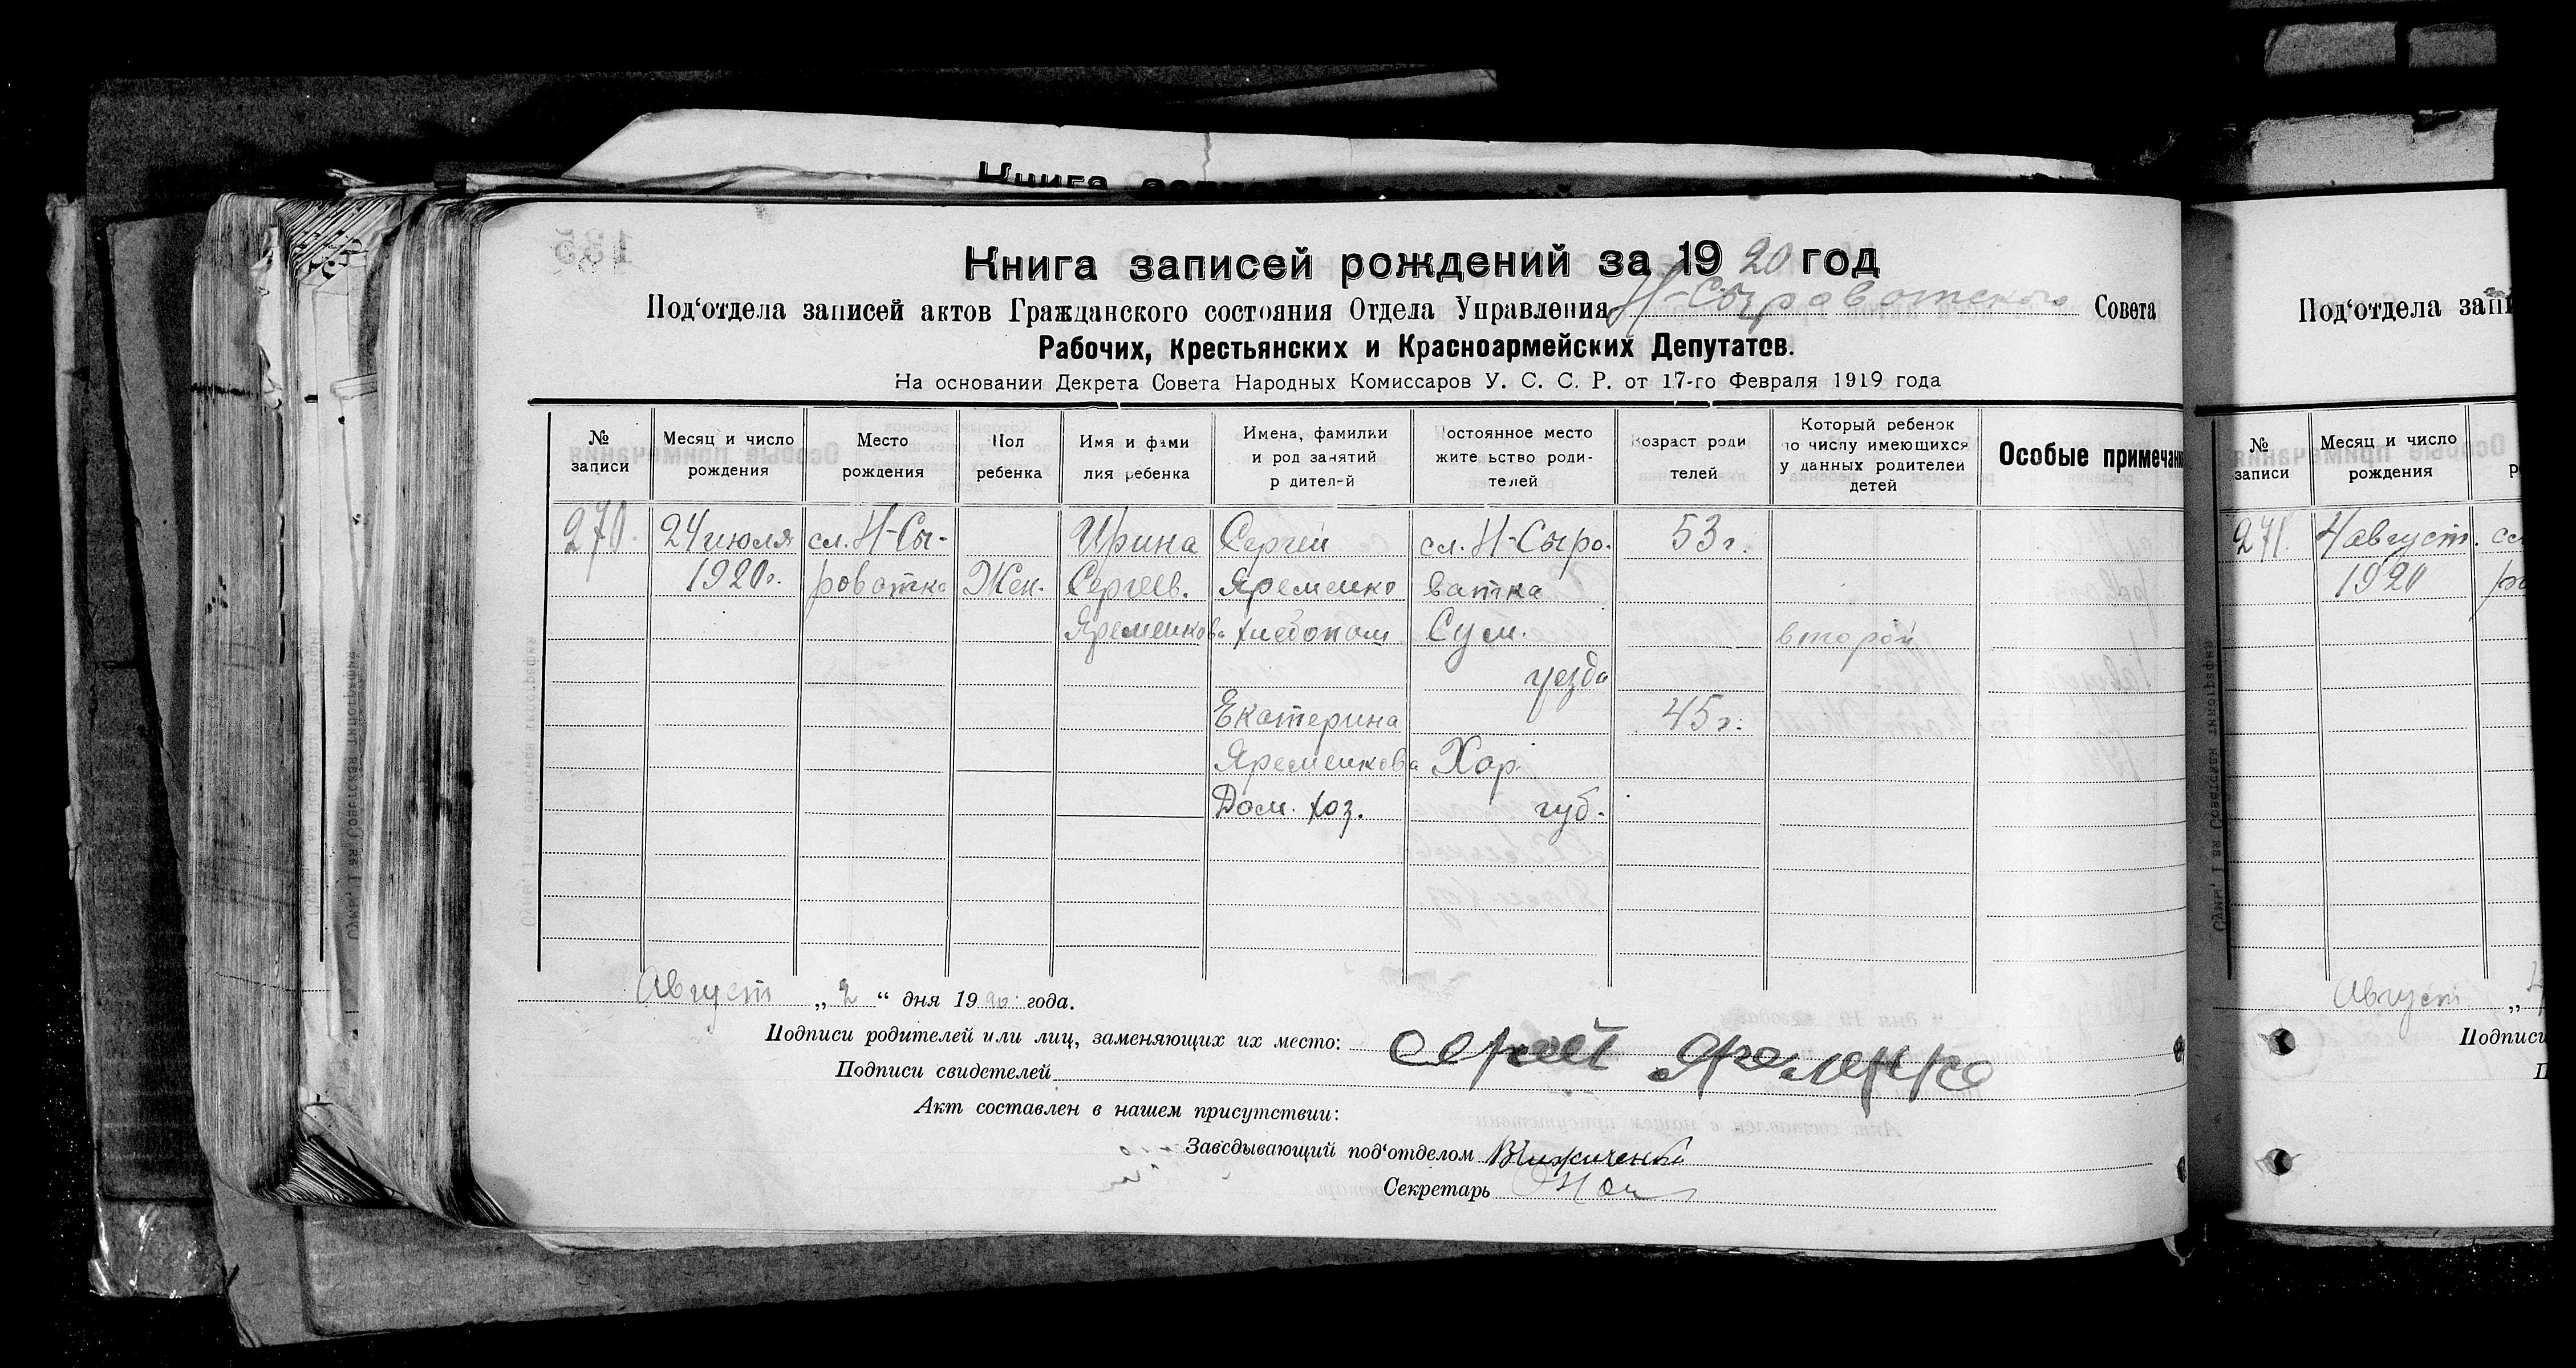 Книга записей рождений за 1920 год
Под‘отдела записей актов Гражданского состояния Отдела Управления Н-Сыроватского Совета
Рабочих, Крестьянских и Красноармейских Депутатов.
На основании Декрета Совета Народных Комиссаров У. С. С. Р. от 17-го Февраля 1919 года
№ записи
Месяц и число рождения
Место рождения
Пол ребенка
Имя и фами лия ребенка
Имена, фамилии и род занятий р дител-й
Постоянное место жите ьство роди- телей
Возраст роди телей
Который ребенок по числу имеющихся у данных родителей детей
Особые примечан
270. 24 июля сл. Н-Сы- Ирина Сергей сл. Н-Сыро- 53 г.
1920 г. роватка Жен. Сергеев. Яременко ватка
Яременкова хлебопаш Сум. второй
уезда
Екатерина 45 г.
Яременкова Хар.
Дом. хоз. губ.
Август „ 2 “ дня 1920 года.
Подписи родителей или лиц, заменяющих их место: Сергей Яременко
Подписи свидетелей
Акт составлен в нашем присутствии:
Заведывающий под‘отделом
Секретарь
Под‘отдела запи
№ записи
Месяц и число рождения
271. 4 август. сл
1920 ро
Август „ 4
Подписи
П